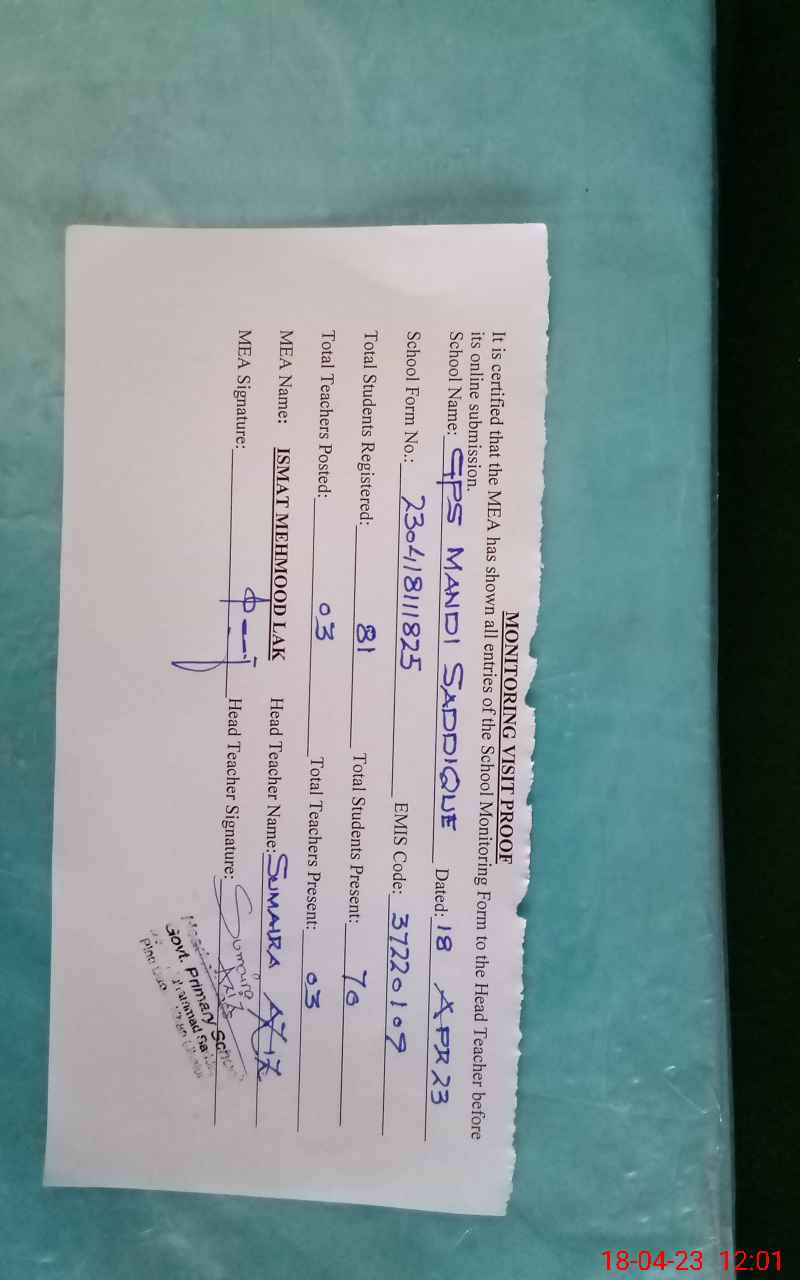 MONITORING VISIT PROOF
It is certified that the MEA has shown all entries of the School Monitoring Form to the Head Teacher before
its online submission.
School Name: GPS MANDI SADDIQUE Dated: 18 APR 23
School Form No.: 230418111825 EMIS Code: 37220109
Total Students Registered: 81 Total Students Present: 70
Total Teachers Posted: 03 Total Teachers Present: 03
MEA Name: ISMAT MEHMOOD LAK Head Teacher Name: SUMAIRA AZIZ
MEA Signature: Head Teacher Signature: Sumaira
Aziz
Govt. Primary School
18-04-23 12:01